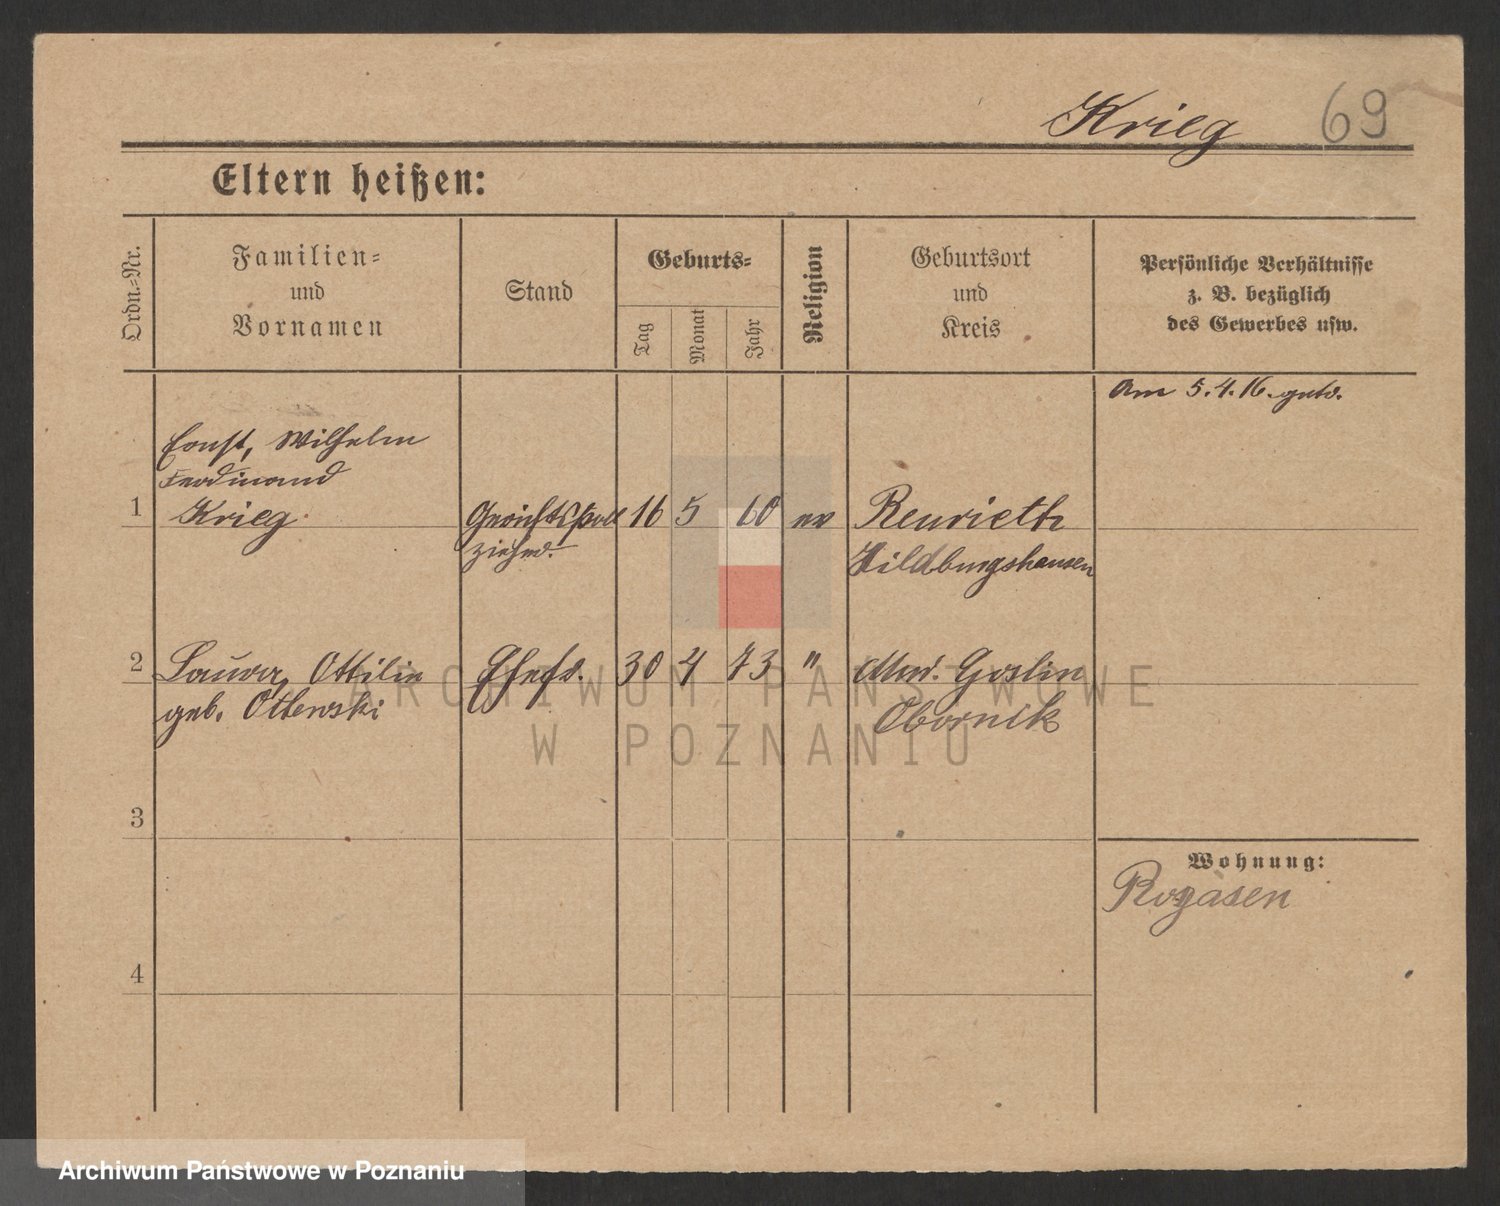 Krieg 69
Eltern heißen:
Ordn.-Nr.
Familien-
und
Vornamen
Stand
Geburts-
Tag
Monat
Jahr
Religion
Geburtsort
und
Kreis
Persönliche Verhältnisse
z. B. bezüglich
des Gewerbes usw.
Am 5.4.16.
Ernst, Wilhelm
Ferdinand
1 Krieg Gerichtsvoll 16 5 60 ev Reurieth
zieher. Hildburghausen
2 Laura, Ottilie Ehefr. 30 4 73 " Goslin
geb. Ottewski Obornik
3
Wohnung:
Rogasen
4
ARCHIWUM PAŃSTWOWE
W POZNANIU
Archiwum Państwowe w Poznaniu